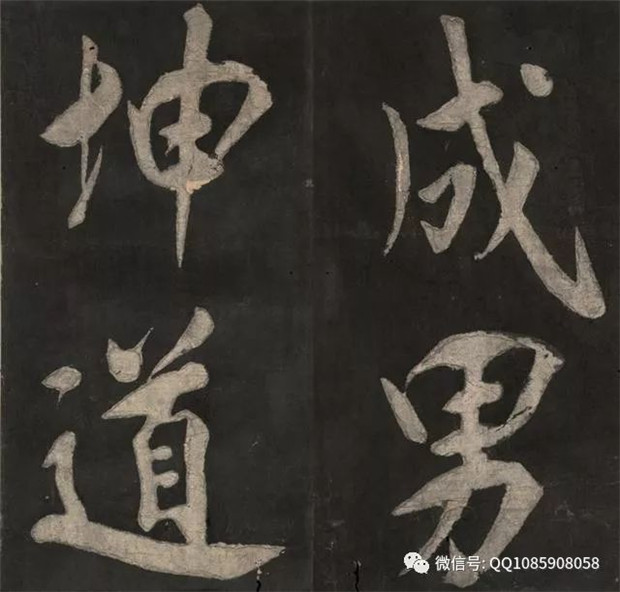 成男
坤道
微信号: QQ1085908058